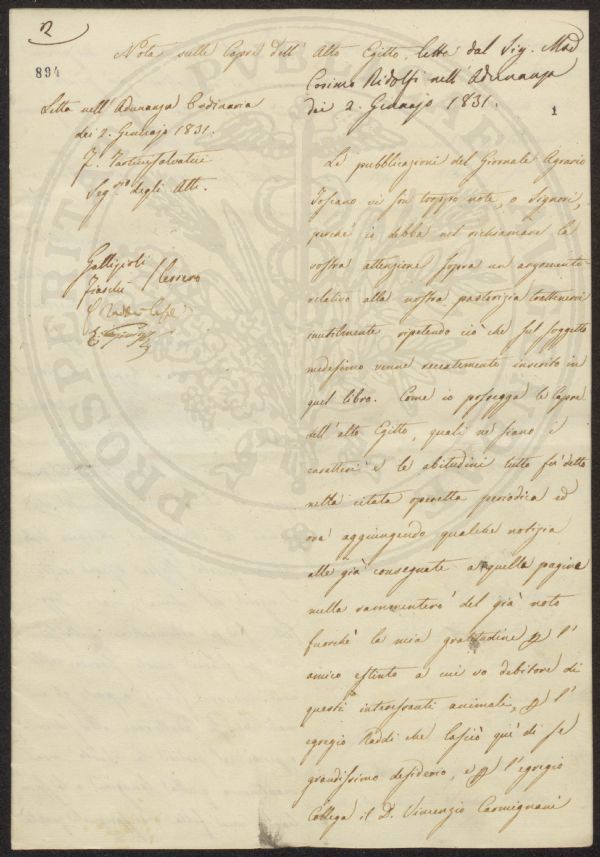 2
894
Nota sulle Capre dell' Alto Egitto, letta dal Sig. Mse
Cosimo Ridolfi nell' Adunanza
dei 2. Gennajo 1831.
1
Letta nell' Adunanza Ordinaria
dei 2. Gennajo 1831.
F. Tartini Salvatici
Segrio degli Atti.
Gallizioli
Le pubblicazioni del Giornale Agrario
Toscano vi son troppo note, o Signori,
perchè io debba nel richiamare la
vostra attenzione sopra un argomento
relativo alla nostra pastorizia trattenervi
inutilmente ripetendo ciò che sul soggetto
medesimo venne recentemente inserito in
quel libro. Come io possegga le Capre
dell' alto Egitto, quali ne siano i
caratteri e le abitudini tutto fu detto
nella citata operetta periodica ed
ora aggiungendo qualche notizia
alle già consegnate a quelle pagine
nulla rammenterò del già noto
fuorchè la mia gratitudine p l'
amico estinto a cui vo debitore di
questi interessanti animali, p l'
egregio Raddi che lasciò quì di se
grandissimo desiderio, e p l'egregio
Collega il D. Vincenzio Carmignani